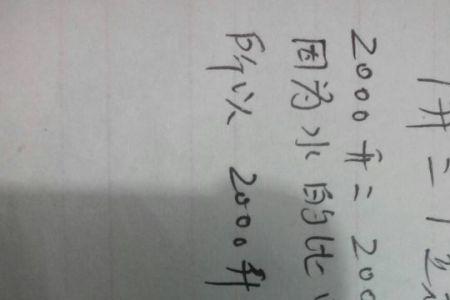 1升=1立
2000升=200
因为水的比
所以 2000升